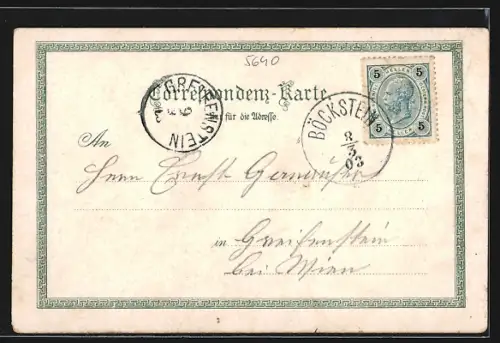 5640
5 5
5 5
Correspondenz-Karte.
für die Adresse.
GREIFENSTEIN
9 3
BÖCKSTEIN
8/3
03
An
Herrn Ernst
in Greifenstein
bei Wien